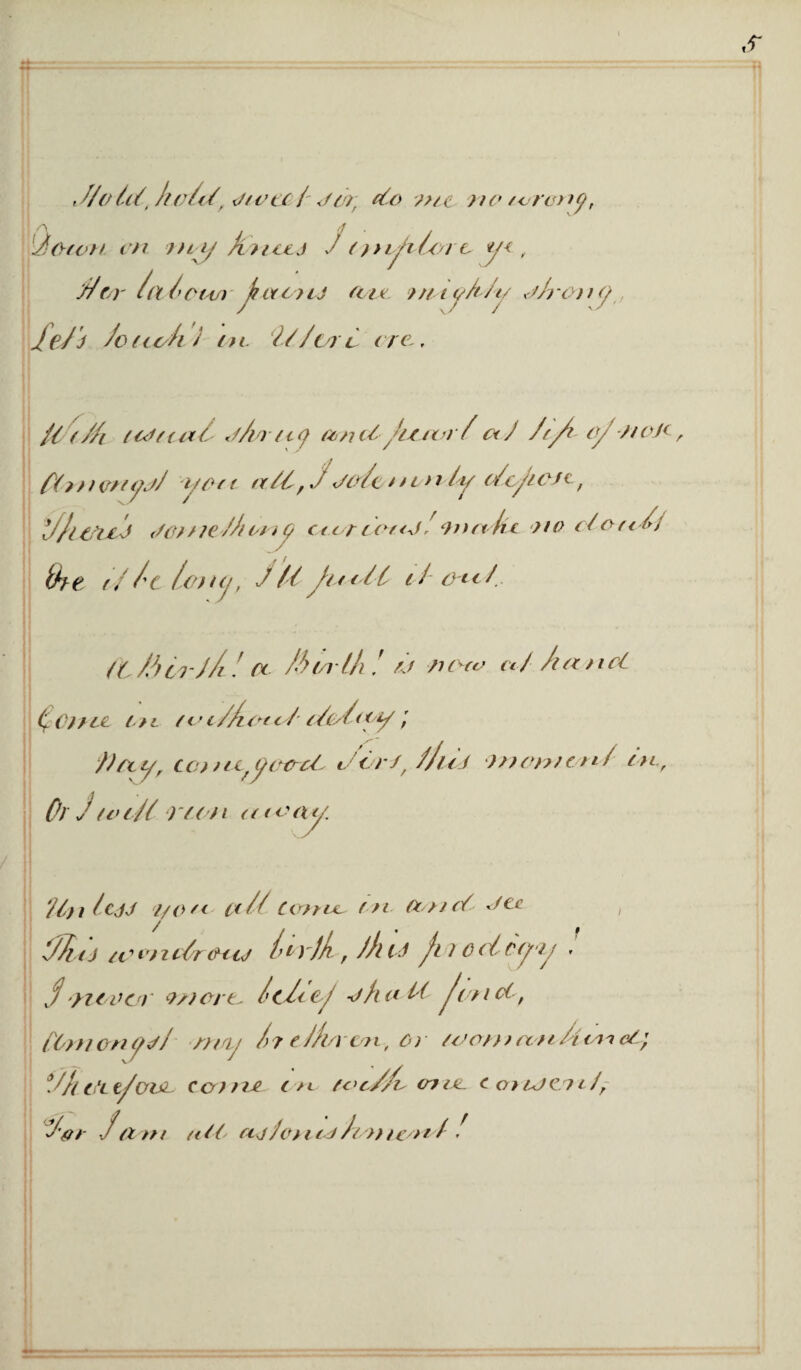 5
Hold, hold, sweet sir, do me no wrong,
Down on my knees I implore ye,
Her labour pains are mighty strong,
Let's touch 1 in
With usual shrug and puart at tip of nose,
Amongst you all, I solemnly depose,
There's something curious! make no doubt
Ere it be long, I'll pull it out.
A Birth! a Birth! is now at hand
Come in without delay;
Nay, come, good Sirs, this moment in,
Or I will run away.
Unless you all come in and see
This wondrous birth, this prodegy!
I never more belief shall find,
Amongst my brethren, or womankind;
Therefore come in with one consent,
For I am all astonishment!